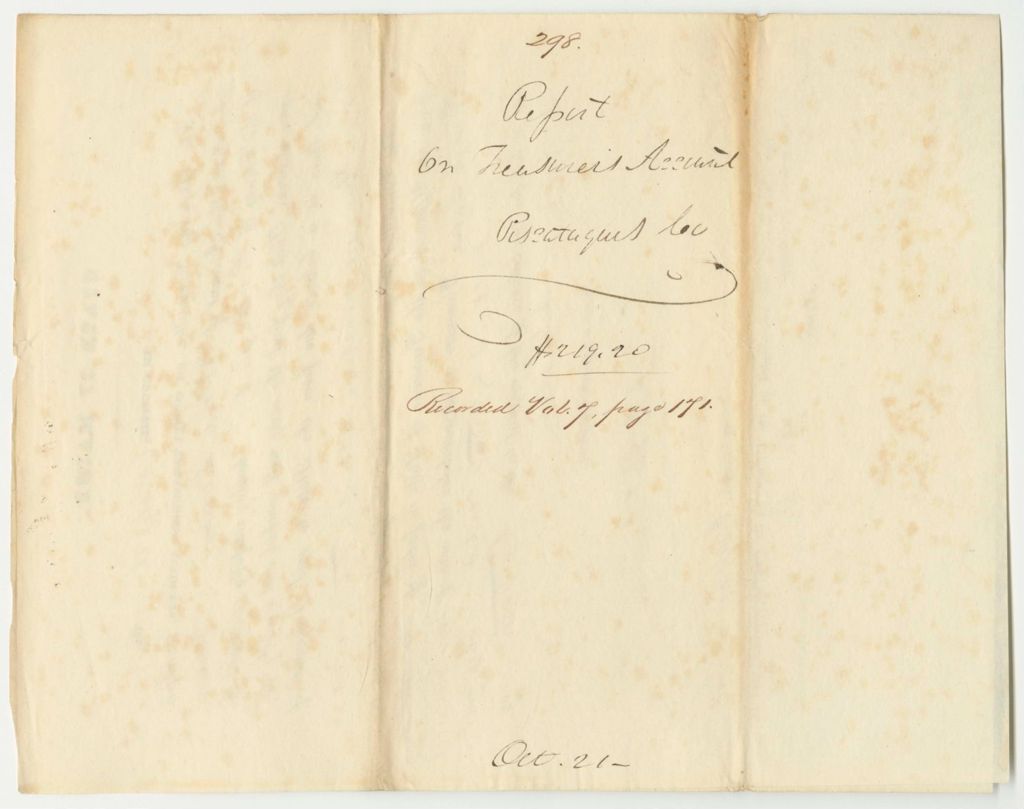 298.
Report
On Treasurer's Account
Piscataquis Co
$219.20
Recorded Vol. 7, page 171.
Oct. 21—